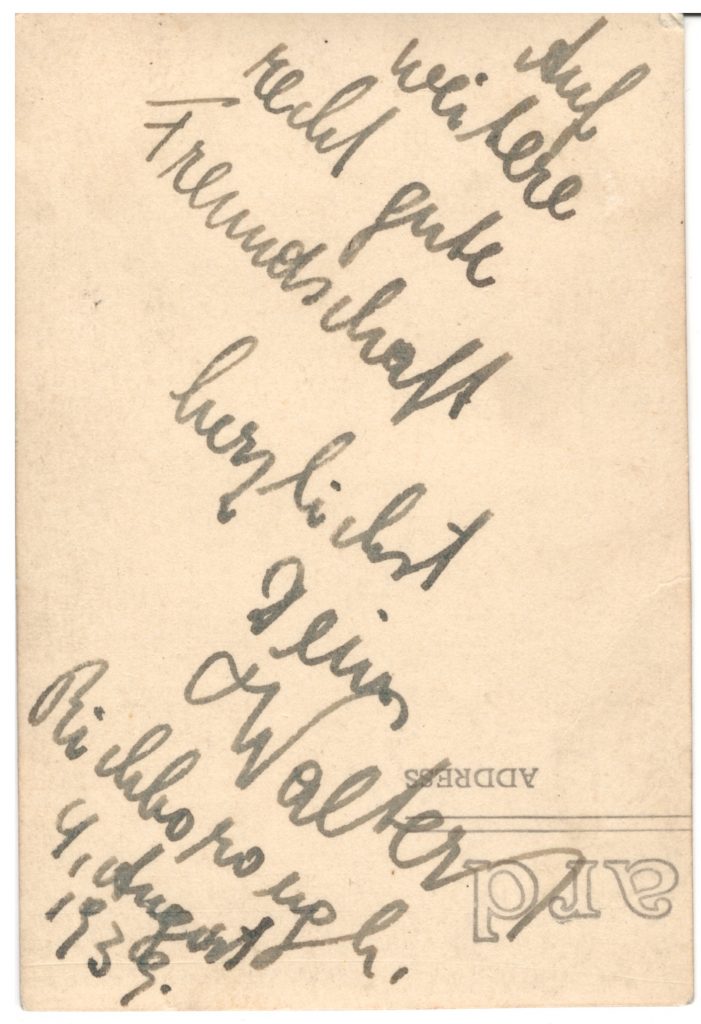 Auf
weitere
recht gute
Freundschaft
herzlichst
Dein
Walter
Richborough.
4. August
1939.
ADDRESS
ard